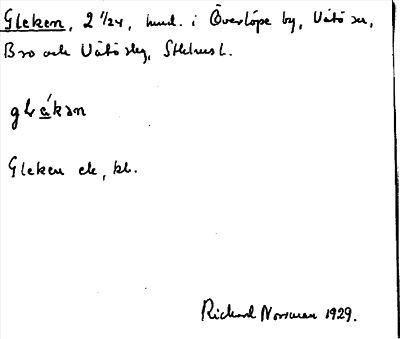 Gleken, 2 1/24, hmd. i Överlöpe by, Vätö sn,
Bro och Vätö slg, Sthlms l.
glékan
Gleken ek, kl.
Richard Norrman 1929.